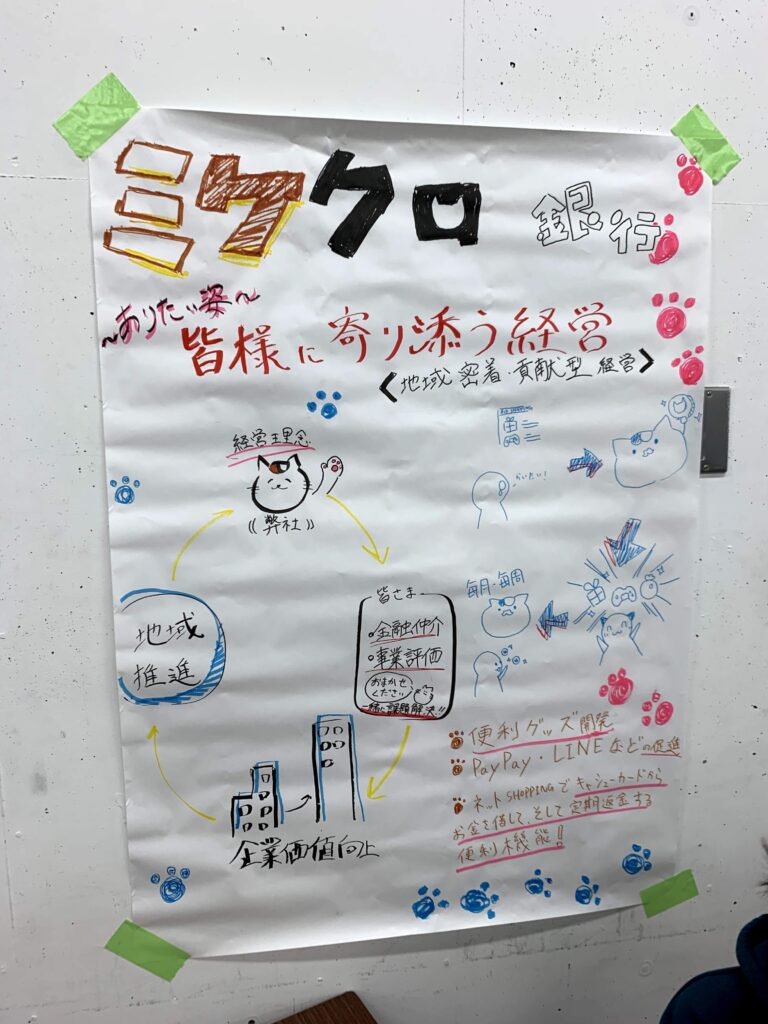 ミケクロ 銀行
～ありたい姿～
皆様に寄り添う経営
＜地域密着・貢献型 経営＞
経営理念
((弊社))
皆さま
・金融仲介
・事業評価
おまかせください
一緒に課題解決!!
企業価値向上
地域推進
かいたい!
毎月・毎周
便利グッズ開発
PayPay・LINEなどの促進
ネットSHOPPINGでキャッシュカードから
お金を借して、そして定期返金する
便利機能!